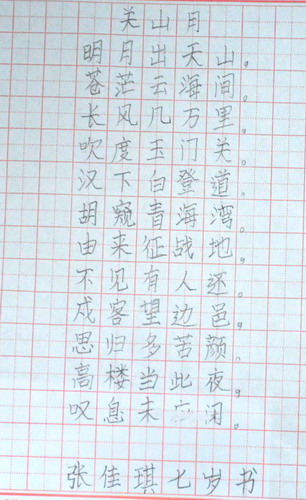 关山月
明月出天山。
苍茫云海间。
长风几万里。
吹度玉门关。
汉下白登道。
胡窥青海湾。
由来征战地。
不见有人还。
戍客望边邑。
思归多苦颜。
高楼当此夜。
叹息未应闲。
张佳琪七岁书